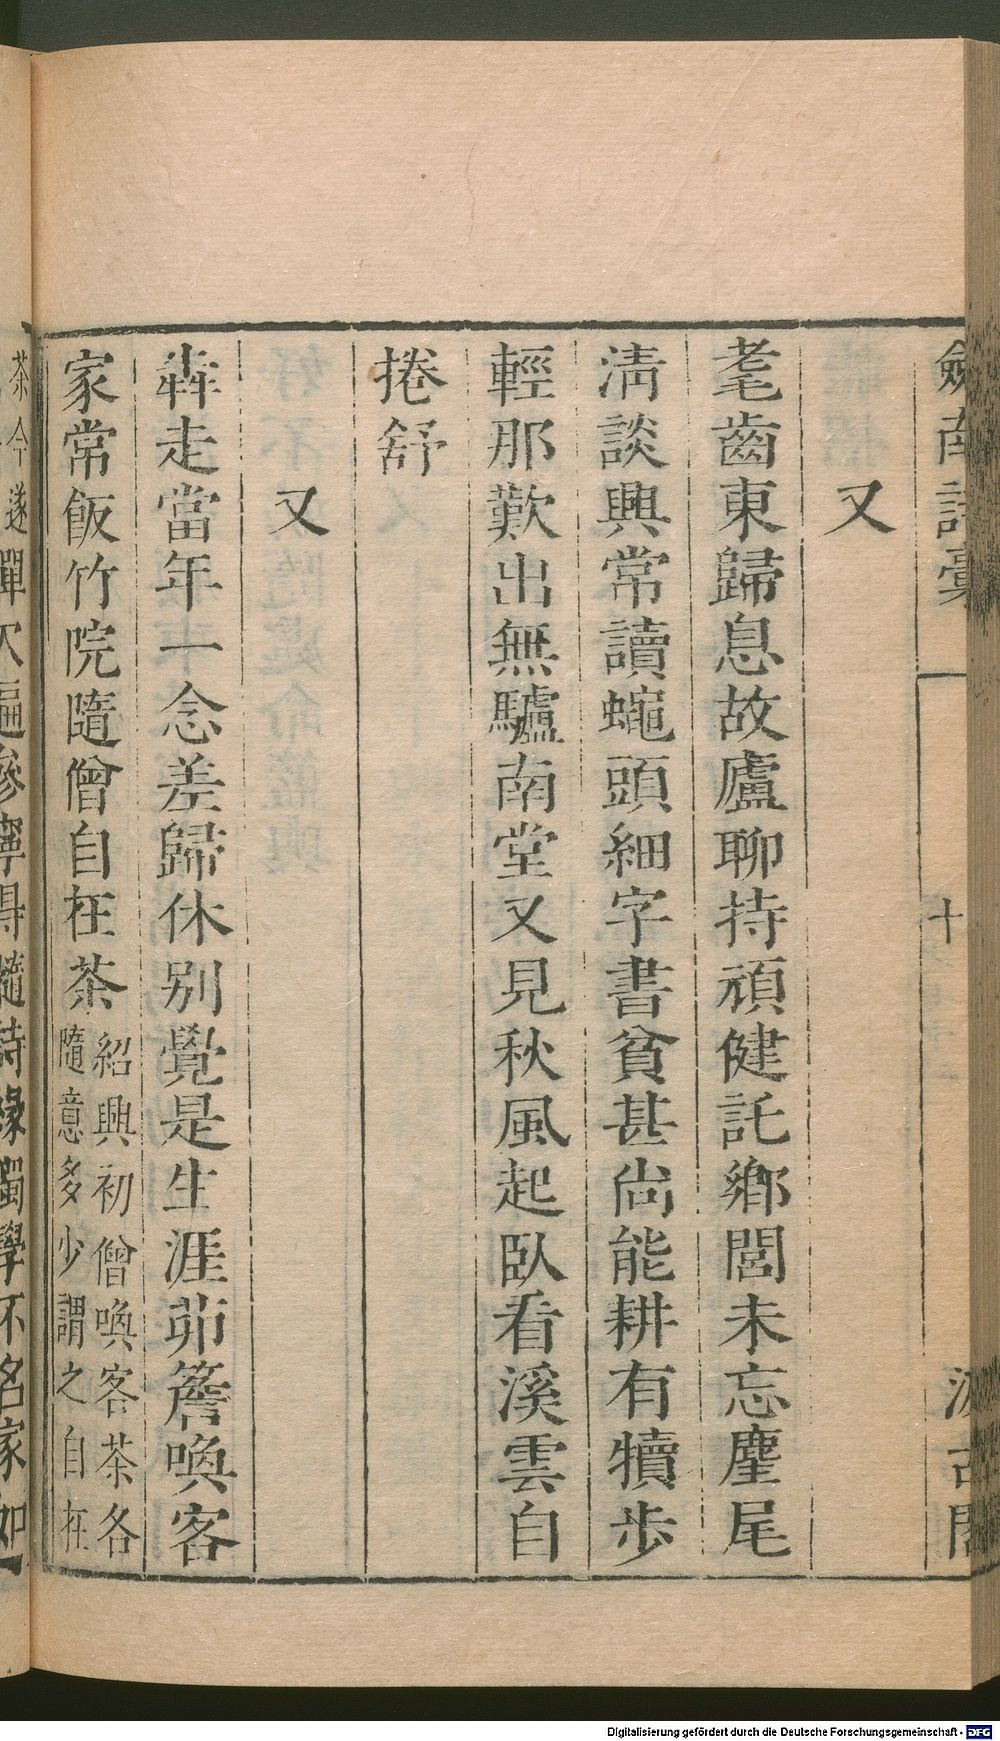 劒南詩稾
十
汲古閣
又
耄齒東歸息故廬聊持頑健託鄉閭未忘麈尾
淸談興常讀蠅頭細字書貧甚尙能耕有犢步
輕那歎出無驢南堂又見秋風起臥看溪雲自
捲舒
又
犇走當年一念差歸休別覺是生涯茆簷喚客
家常飯竹院隨僧自在茶紹興初僧喚客茶各
隨意多少謂之自在
茶今遂
遍參寧得髓詩緣獨學不名家如
Digitalisierung gefördert durch die Deutsche Forschungsgemeinschaft - DFG